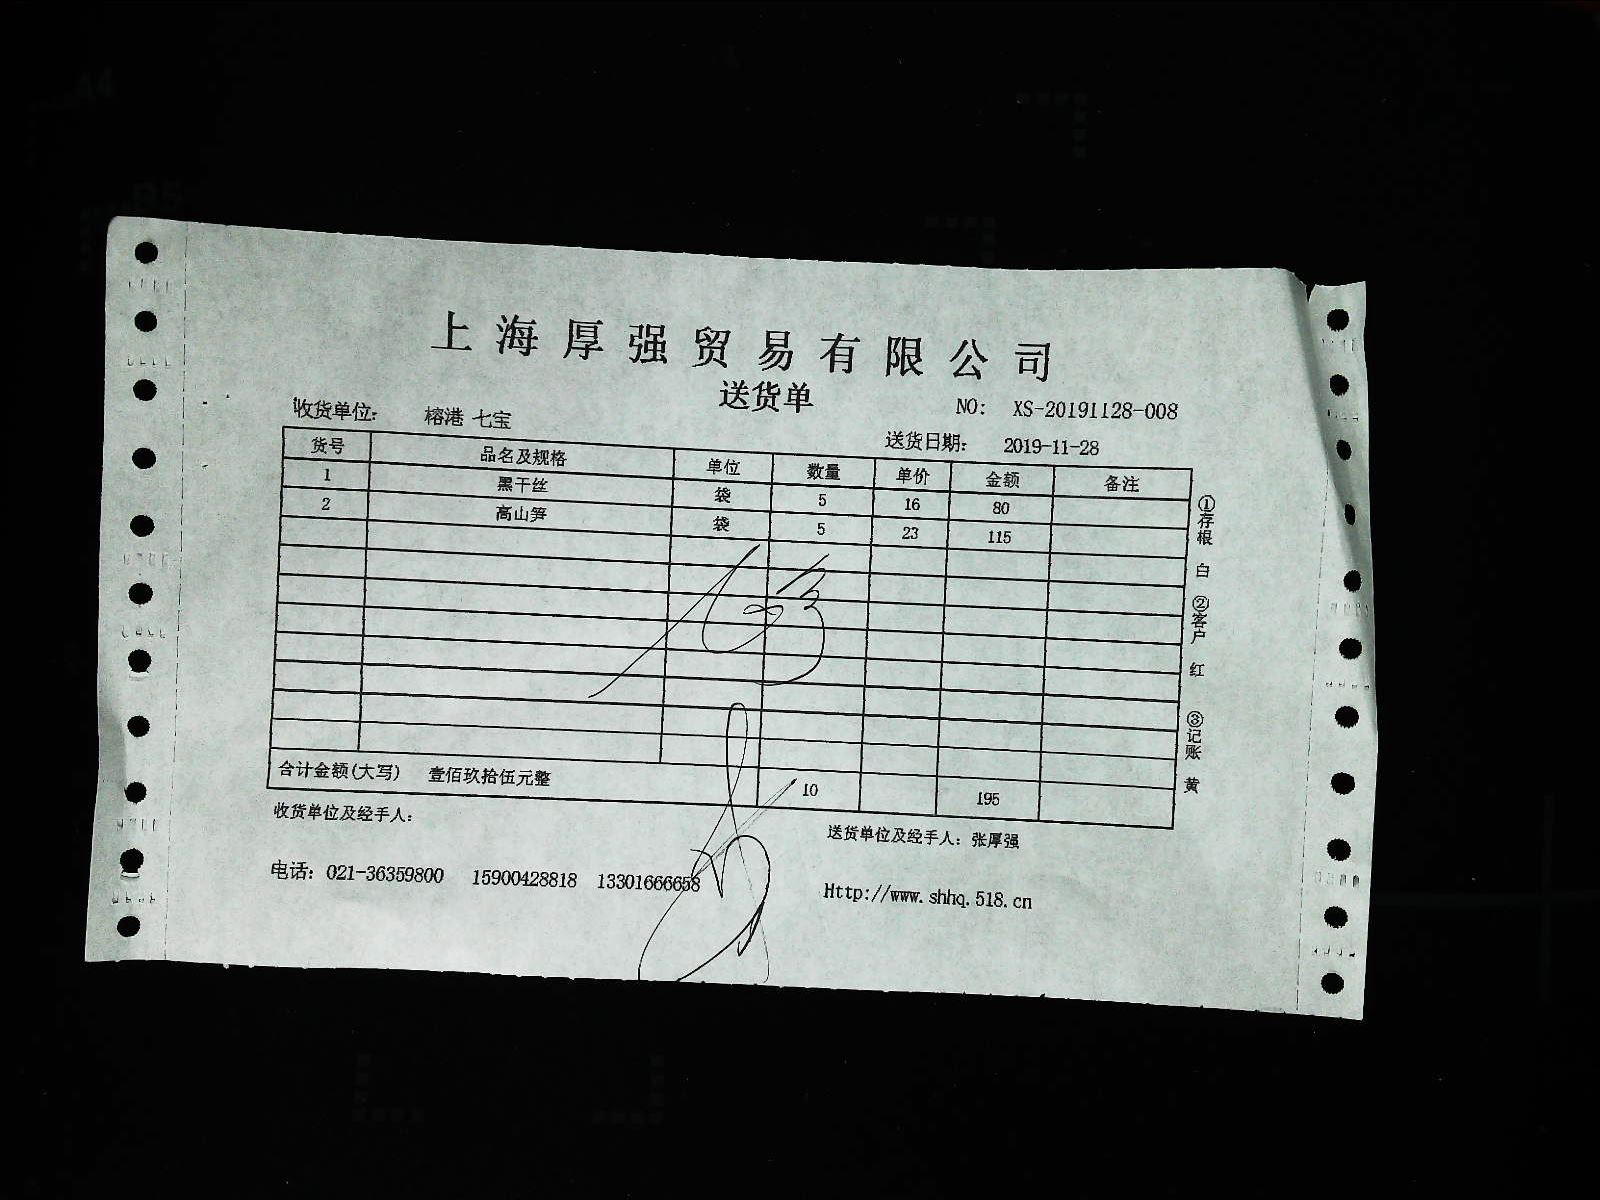 上海厚强贸易有限公司
送货单
收货单位： 榕港 七宝 NO： XS-20191128-008
送货日期： 2019-11-28
货号 品名及规格 单位 数量 单价 金额 备注
1 黑干丝 袋 5 16 80
2 高山笋 袋 5 23 115
合计金额(大写) 壹佰玖拾伍元整 10 195
收货单位及经手人： 送货单位及经手人：张厚强
电话：021-36359800 15900428818 13301666658 Http://www.shhq.518.cn
①存根 白 ②客户 红 ③记账 黄